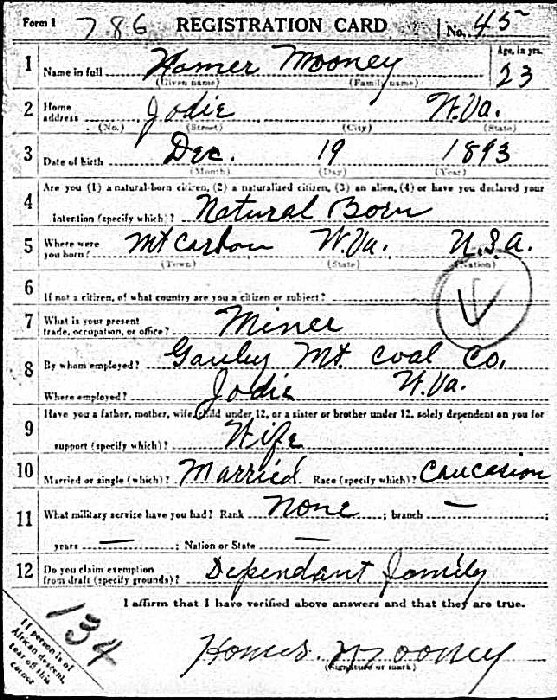 Form 1 786 REGISTRATION CARD No. 45
1 Name in full Homer Mooney Age, in yrs. 23
(Given name) (Family name)
2 Home address Jodie W.Va.
(No.) (Street) (City) (State)
3 Date of birth Dec. 19 1893
(Month) (Day) (Year)
4 Are you (1) a natural-born citizen, (2) a naturalized citizen, (3) an alien, (4) or have you declared your
intention (specify which)? Natural Born
5 Where were you born? Mt Carbon W.Va. U.S.A.
(Town) (State) (Nation)
6 If not a citizen, of what country are you a citizen or subject?
7 What is your present trade, occupation, or office? Miner
8 By whom employed? Gauley Mt. Coal Co.
Where employed? Jodie W.Va.
9 Have you a father, mother, wife, child under 12, or a sister or brother under 12, solely dependent on you for
support (specify which)? Wife
10 Married or single (which)? Married Race (specify which)? Caucasion
11 What military service have you had? Rank None ; branch —
years — ; Nation or State —
12 Do you claim exemption from draft (specify grounds)? Dependant family
I affirm that I have verified above answers and that they are true.
134
If person is of African descent, tear off this corner
Homer Mooney
(Signature or mark)